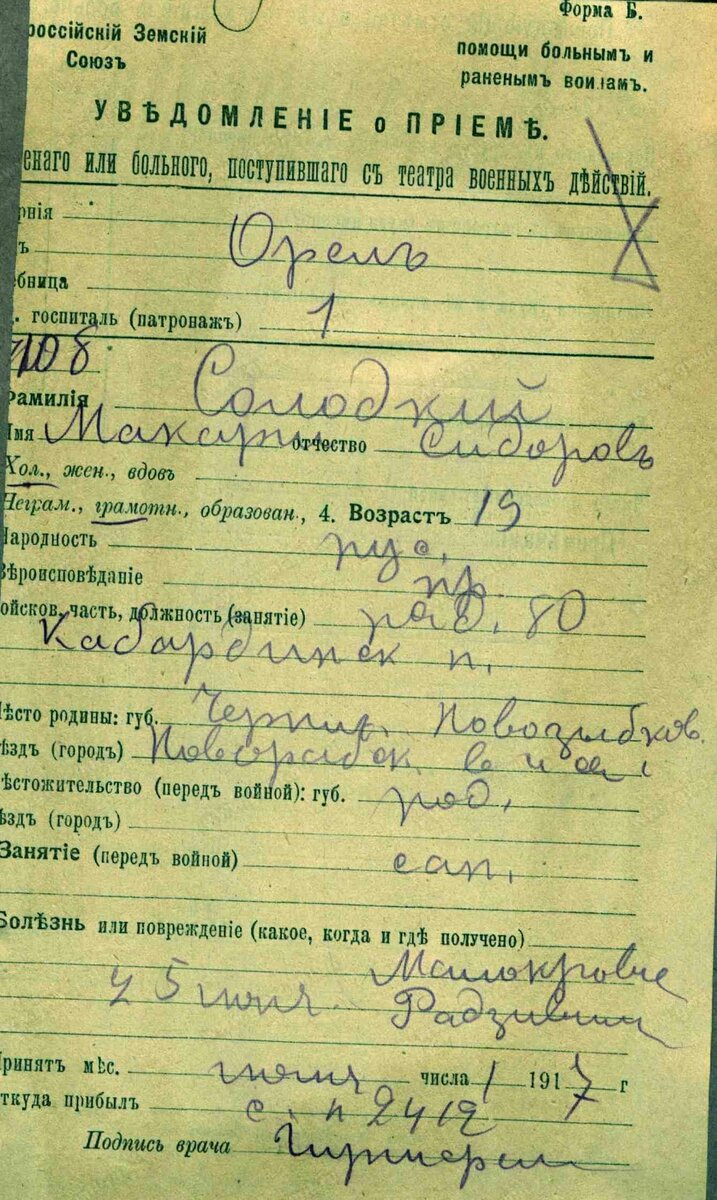 россійскій Земскій
Союзъ
Форма Б.
помощи больнымъ и
раненымъ воинамъ.
УВѢДОМЛЕНІЕ о ПРІЕМѢ.
енаго или больного, поступившаго съ театра военныхъ дѣйствій.
рнія
ъ Орелъ
бница
. госпиталь (патронажъ) 1
Фамилія Солодкий
Имя Макарий отчество Сидоровъ
Хол., жен., вдовъ
Неграм., грамотн., образован., 4. Возрастъ 19
Народность рус.
Вѣроисповѣданіе пр.
ойсков. часть, должность (занятіе) ряд. 80
Кабардинск п.
Мѣсто родины: губ. Черниг. Новозыбков.
ѣздъ (городъ)
ѣстожительство (передъ войной): губ. род.
ѣздъ (городъ)
Занятіе (передъ войной) сап.
Болѣзнь или поврежденіе (какое, когда и гдѣ получено)
Малокровие
5 июня Радзивил
Принятъ мѣс. числа 1 1917 г
ткуда прибылъ с. п 2412
Подпись врача